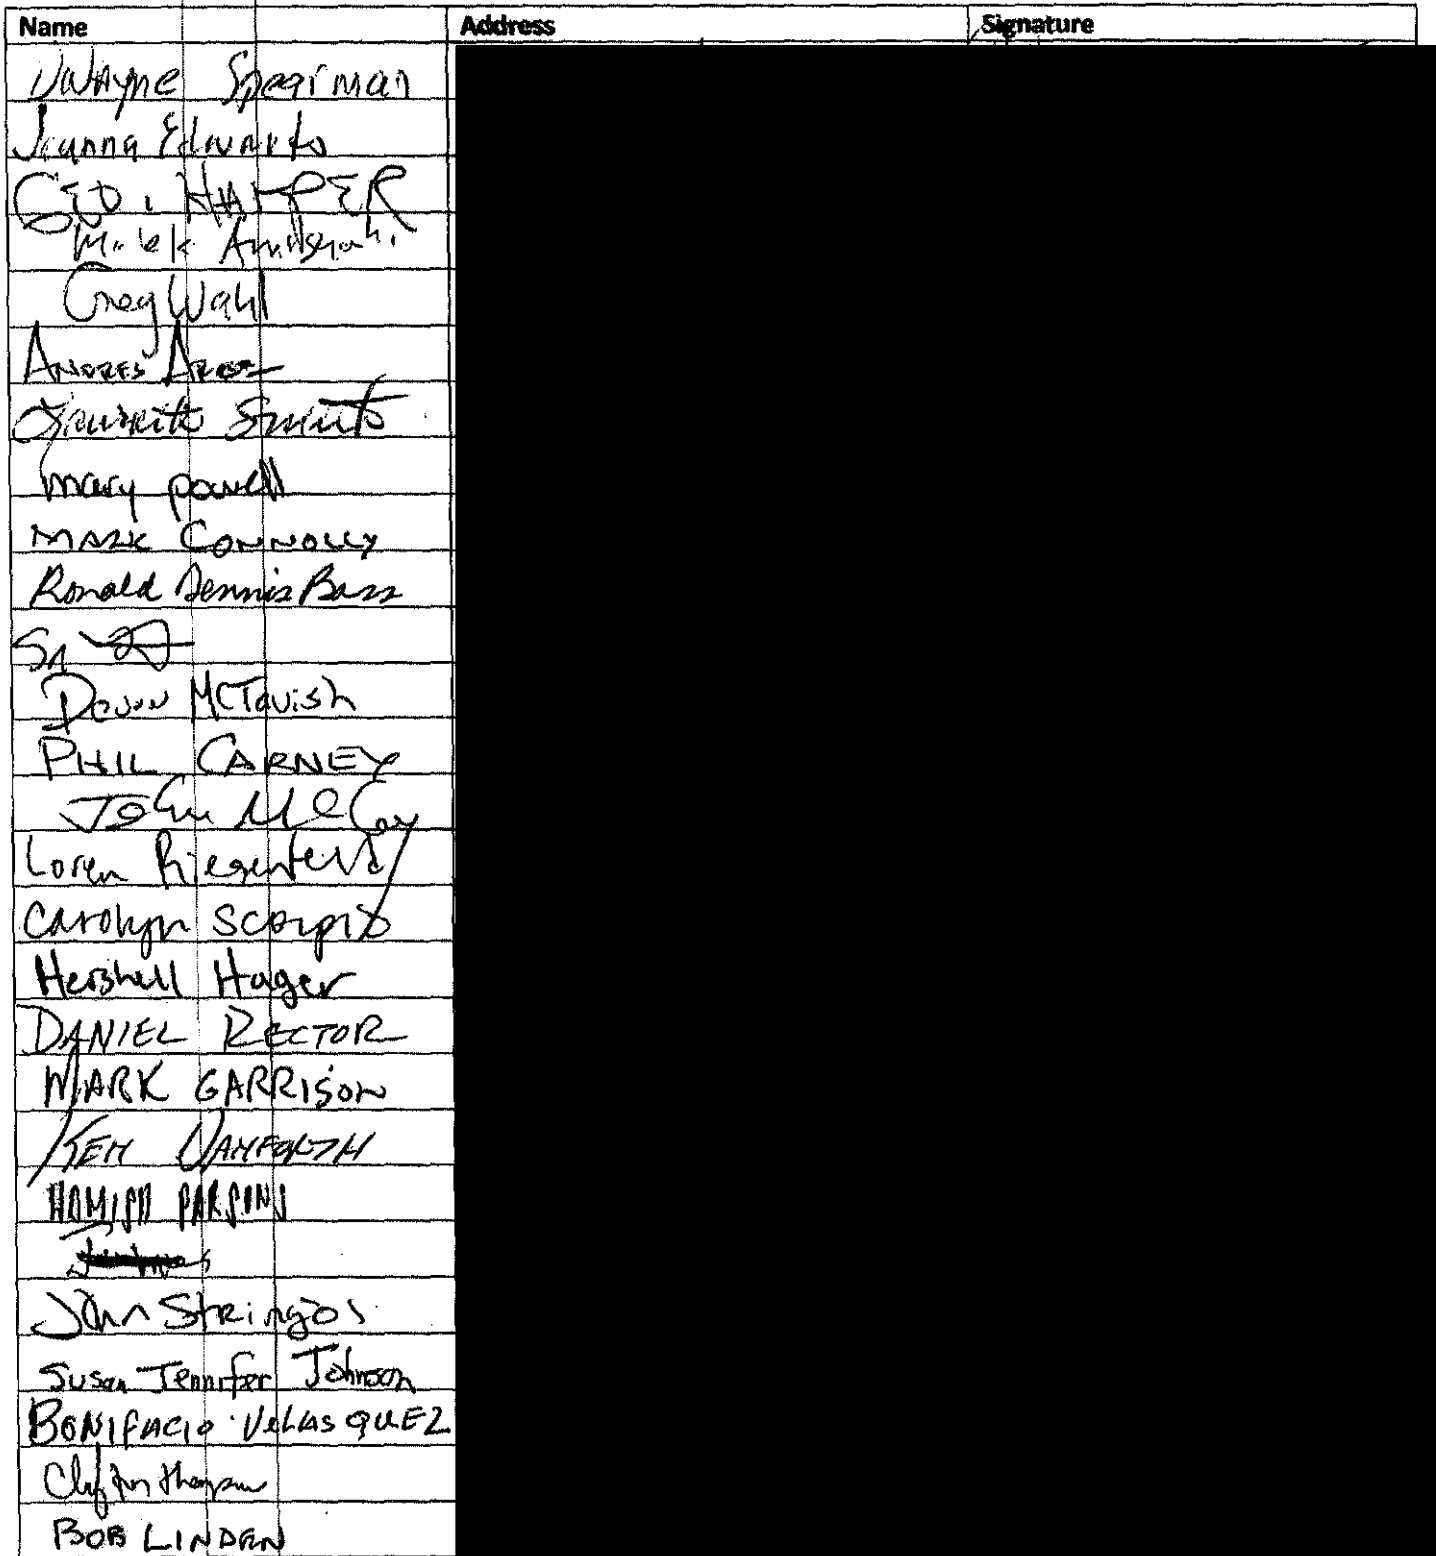 Name Address Signature
Dwayne Spearman
Joanna Edwards
GEO. HARPER
Malek
Greg Wahl
ANDRES
Smith
Mary powell
MARK CONNOLLY
Ronald Dennis Bass
Devon McTavish
PHIL CARNEY
John McCoy
Loren
Carolyn Scorpio
Hershell Hager
DANIEL RECTOR
MARK GARRISON
KEN DANFORTH
HAMISH PARSONS
John Stringos
Susan Jennifer Johnson
BONIFACIO VELASQUEZ
Clifton Thompson
BOB LINDEN